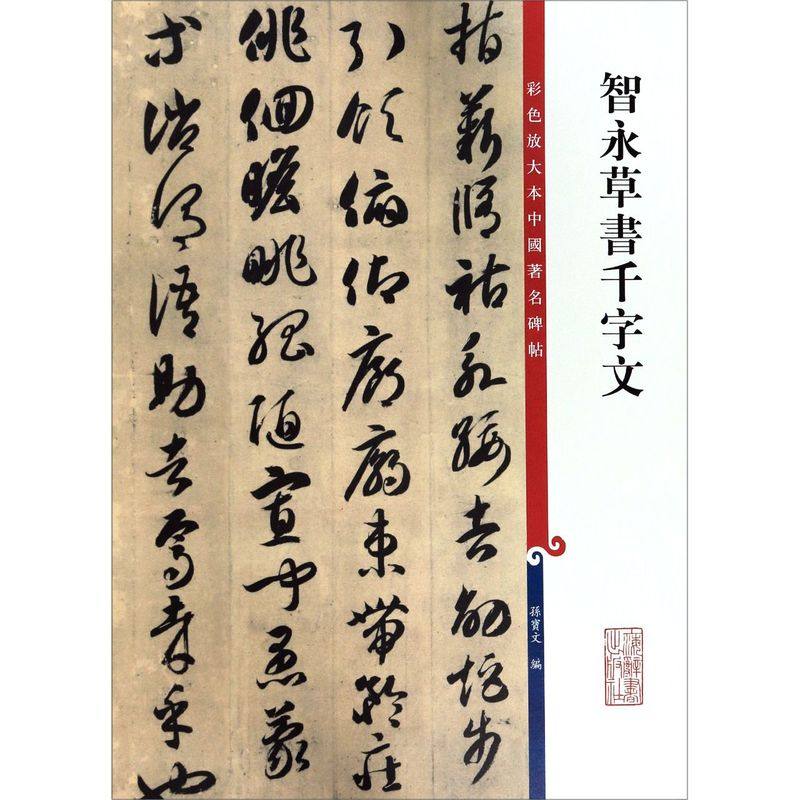 智永草書千字文
彩色放大本中國著名碑帖
孫寶文 編
指薪脩祜永綏吉劭矩步
引領俯仰廊廟束帶矜莊
徘徊瞻眺孤陋寡聞愚蒙
等誚謂語助者焉哉乎也